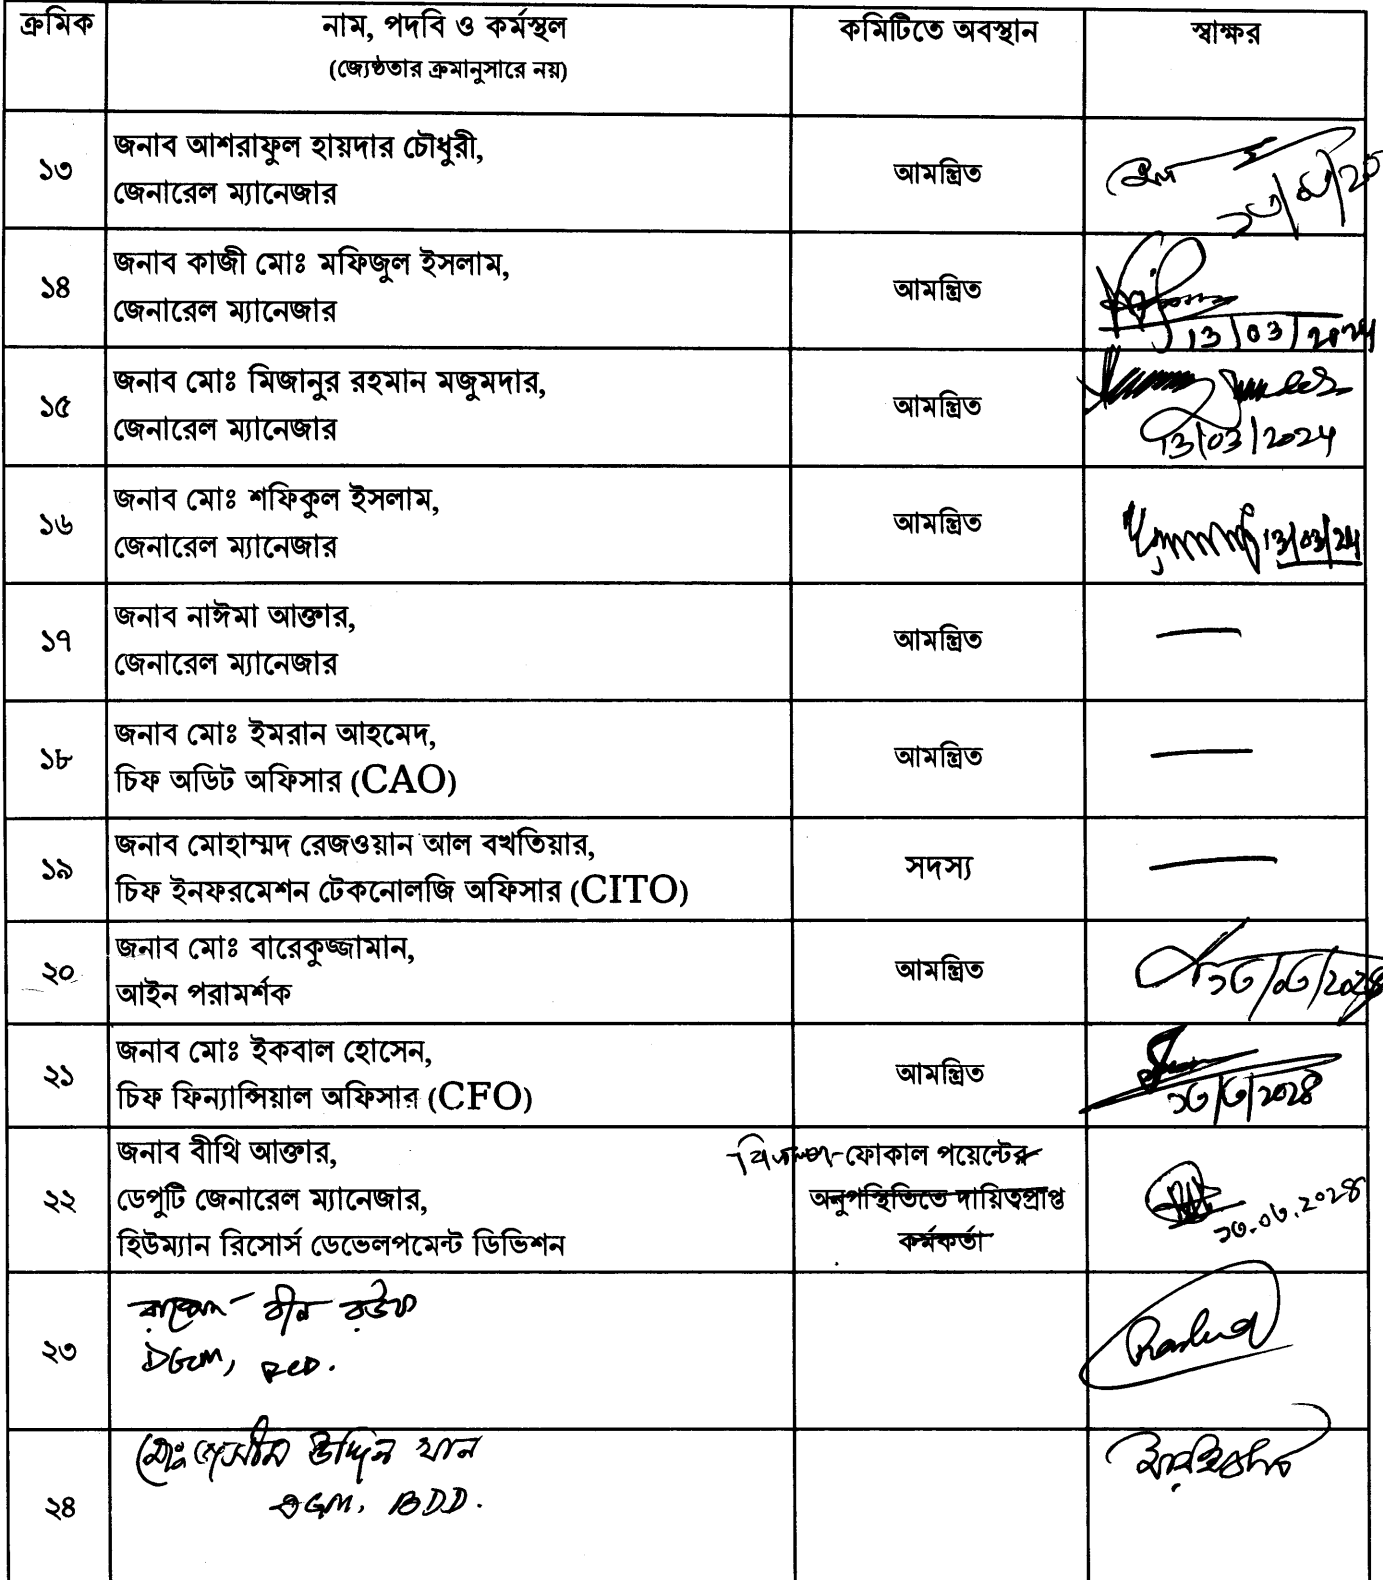 ক্রমিক
নাম, পদবি ও কর্মস্থল
(জ্যেষ্ঠতার ক্রমানুসারে নয়)
কমিটিতে অবস্থান
স্বাক্ষর
১৩
জনাব আশরাফুল হায়দার চৌধুরী,
জেনারেল ম্যানেজার
আমন্ত্রিত
১৪
জনাব কাজী মোঃ মফিজুল ইসলাম,
জেনারেল ম্যানেজার
আমন্ত্রিত
13/03/2024
১৫
জনাব মোঃ মিজানুর রহমান মজুমদার,
জেনারেল ম্যানেজার
আমন্ত্রিত
13/03/2024
১৬
জনাব মোঃ শফিকুল ইসলাম,
জেনারেল ম্যানেজার
আমন্ত্রিত
13/03/24
১৭
জনাব নাঈমা আক্তার,
জেনারেল ম্যানেজার
আমন্ত্রিত
১৮
জনাব মোঃ ইমরান আহমেদ,
চিফ অডিট অফিসার (CAO)
আমন্ত্রিত
১৯
জনাব মোহাম্মদ রেজওয়ান আল বখতিয়ার,
চিফ ইনফরমেশন টেকনোলজি অফিসার (CITO)
সদস্য
২০
জনাব মোঃ বারেকুজ্জামান,
আইন পরামর্শক
আমন্ত্রিত
১৩/০৩/২০২৪
২১
জনাব মোঃ ইকবাল হোসেন,
চিফ ফিন্যান্সিয়াল অফিসার (CFO)
আমন্ত্রিত
১৩/৩/২০২৪
২২
জনাব বীথি আক্তার,
ডেপুটি জেনারেল ম্যানেজার,
হিউম্যান রিসোর্স ডেভেলপমেন্ট ডিভিশন
বিকল্প ফোকাল পয়েন্টের
অনুপস্থিতিতে দায়িত্বপ্রাপ্ত
কর্মকর্তা
১৩.০৩.২০২৪
২৩
বীন রউফ
DGM, RCD.
২৪
মোঃ জসীম উদ্দিন খান
DGM, BDD.